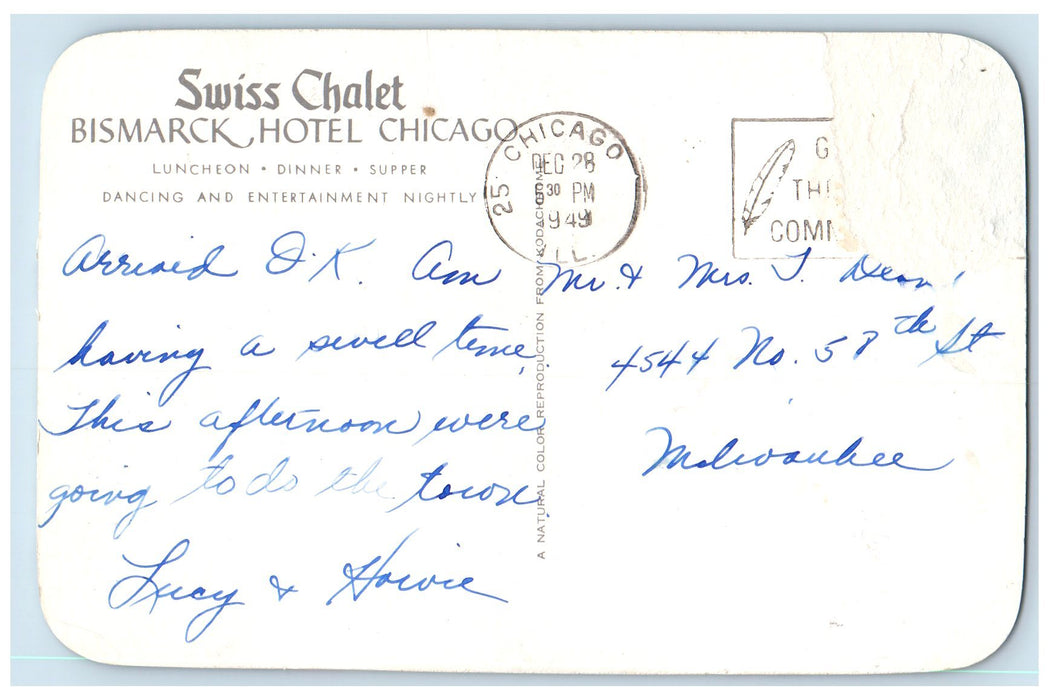 Swiss Chalet
BISMARCK HOTEL CHICAGO
LUNCHEON • DINNER • SUPPER
DANCING AND ENTERTAINMENT NIGHTLY
Arrived O.K. Am
having a swell time.
This afternoon were
going to do the town.
Lucy & Howie
A NATURAL COLOR REPRODUCTION FROM KODACHROME
25 CHICAGO
DEC 28
30 PM
1949
ILL.
G
THI
COMM
Mr. & Mrs. T. Dean
4544 No. 58th St
Milwaukee